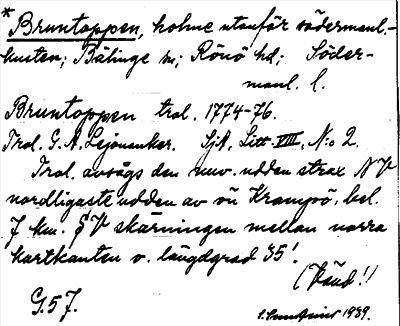 * Bruntoppen, holme utanför södermanl.-
kusten; Bälinge sn; Rönö hd; Söder-
manl. l.
Bruntoppen trol. 1774-76.
Trol. G. A. Lejonanker. SjA, Litt. VIII, N:o 2.
Trol. avsågs den nuv. udden strax NV
nordligaste udden av ön Krampö, bel.
7 km. SV skärningen mellan norra
kartkanten o. längdgrad 35'.
(Vänd!)
G. 5 J.
1939.